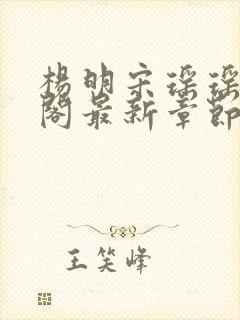 杨明宋瑶瑶
阁最新章节
王笑峰